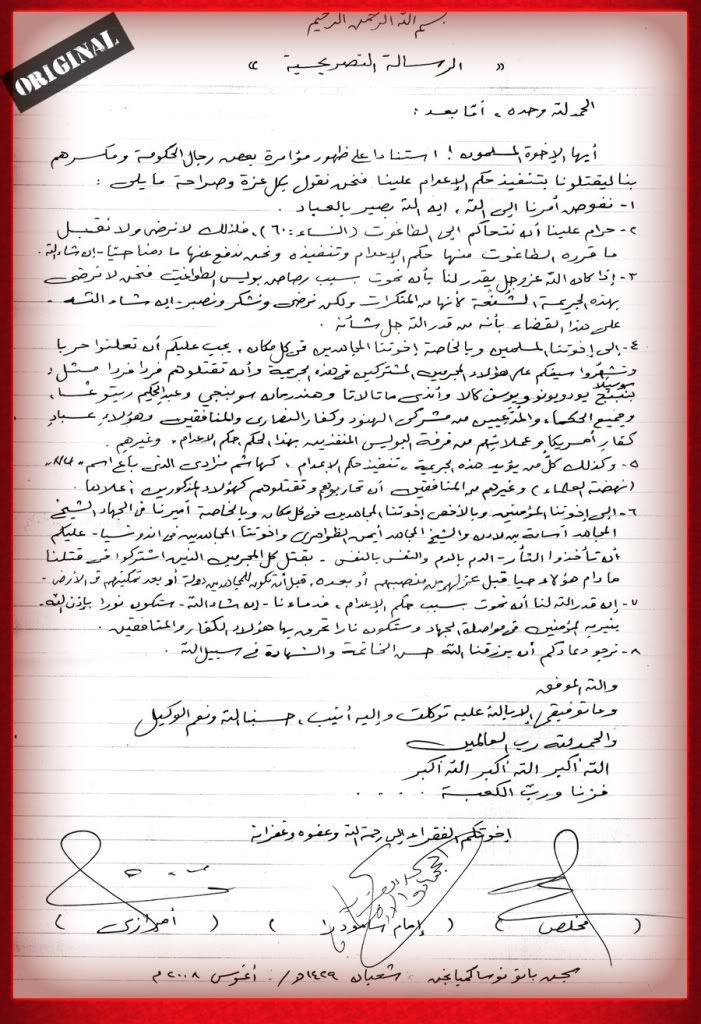 بسم الله الرحمن الرحيم
ORIGINAL
« الرسالة التصريحية »
الحمد لله وحده ، أمّا بعد :
أيها الإخوة المسلمون ! استنادا على ظهور مؤامرة بعض رجال الحكومة ومكسرهم
بنا ليقتلونا بتنفيذ حكم الإعدام علينا فنحن نقول بكل عزة وصراحة ما يلى :
١- نفوض أمرنا إلى الله ، إن الله بصير بالعباد .
٢- حرام علينا أن نتحاكم إلى الطاغوت (النساء : ٦٠) ، فلذلك لا نرضى ولا نقبل
ما قرره الطاغوت منها حكم الإعدام وتنفيذه ونحن ندفع عنها ما دمنا حيا - إن شاء الله -
٣- إذا كان الله عز وجل يقدر لنا بأن نموت بسبب رصاص بوليس الطواغيت فنحن لا نرضى
بهذه الجريمة الشنيعة لأنها من المنكرات ولكن نرضى ونشكر ونصبر - إن شاء الله -
على هذا القضاء بأنه من قدر الله جل شأنه .
٤- إلى إخوتنا المسلمين وبالخاصة إخوتنا المجاهدين فى كل مكان ، يجب عليكم أن تعلنوا حربا
وتشهّروا سيفكم على هؤلاء المجرمين المشتركين فى هذه الجريمة وأن تقتلوهم فردا فردا مثل :
سوسيلا
بمبنج يودويونو ويوسف كالا وأندى ماتالاتا وهندرمان سوبنجي وعبد الحكيم ريتوغا ،
وجميع الحكماء والمدّعيين من مشركى الهنود وكفار النصارى والمنافقين وهؤلاء عباد
كفار أمريكا وعملائهم من فرقة البوليس المنفذين بهذا الحكم حكم الإعدام ، وغيرهم .
٥- وكذلك كل من يؤيد هذه الجريمة ، تنفيذ حكم الإعدام ، كهاشم مزادى الذى باع اسم " NU "
(نهضة العلماء) وغيرهم من المنافقين أن تحاربوهم وتقتلوهم كهؤلاء المذكورين أعلاه .
٦- إلى إخوتنا المؤمنين وبالأخص إخوتنا المجاهدين فى كل مكان وبالخاصة أميرنا فى الجهاد الشيخ
المجاهد أسامة بن لادن والشيخ المجاهد أيمن الظواهرى وإخوتنا المجاهدين فى اندونسيا - عليكم
أن تأخذوا الثأر - الدم بالدم والنفس بالنفس - بقتل كل المجرمين الذين اشتركوا فى قتلنا
ما دام هؤلاء حيا قبل عزلهم من منصبهم أو بعده ، قبل أن تكون للمجاهدين دولة أو بعد تمكينهم فى الأرض -
٧- إن قدر الله لنا أن نموت بسبب حكم الإعدام ، فدماءنا - إن شاء الله - ستكون نورا بإذن الله -
ينير به المؤمنين فى مواصلة الجهاد وستكون نارا تحرق بها هؤلاء الكفار والمنافقين .
٨- نرجو دعاءكم أن يرزقنا الله حسن الخاتمة والشهادة فى سبيل الله .
والله الموفق
وما توفيقى إلا بالله عليه توكلت وإليه أنيب ، حسبنا الله ونعم الوكيل
والحمد لله رب العالمين
الله أكبر الله أكبر الله أكبر
فزنا ورب الكعبة . . . .
إخوتكم الفقراء إلى رحمة الله وعفوه وغفرانه
( مخلص ) ( إمام سامودرا ) ( أمرازى )
سجن باتو نوساكمبانجن ، شعبان ١٤٢٩ هـ / أغوس ٢٠٠٨ م